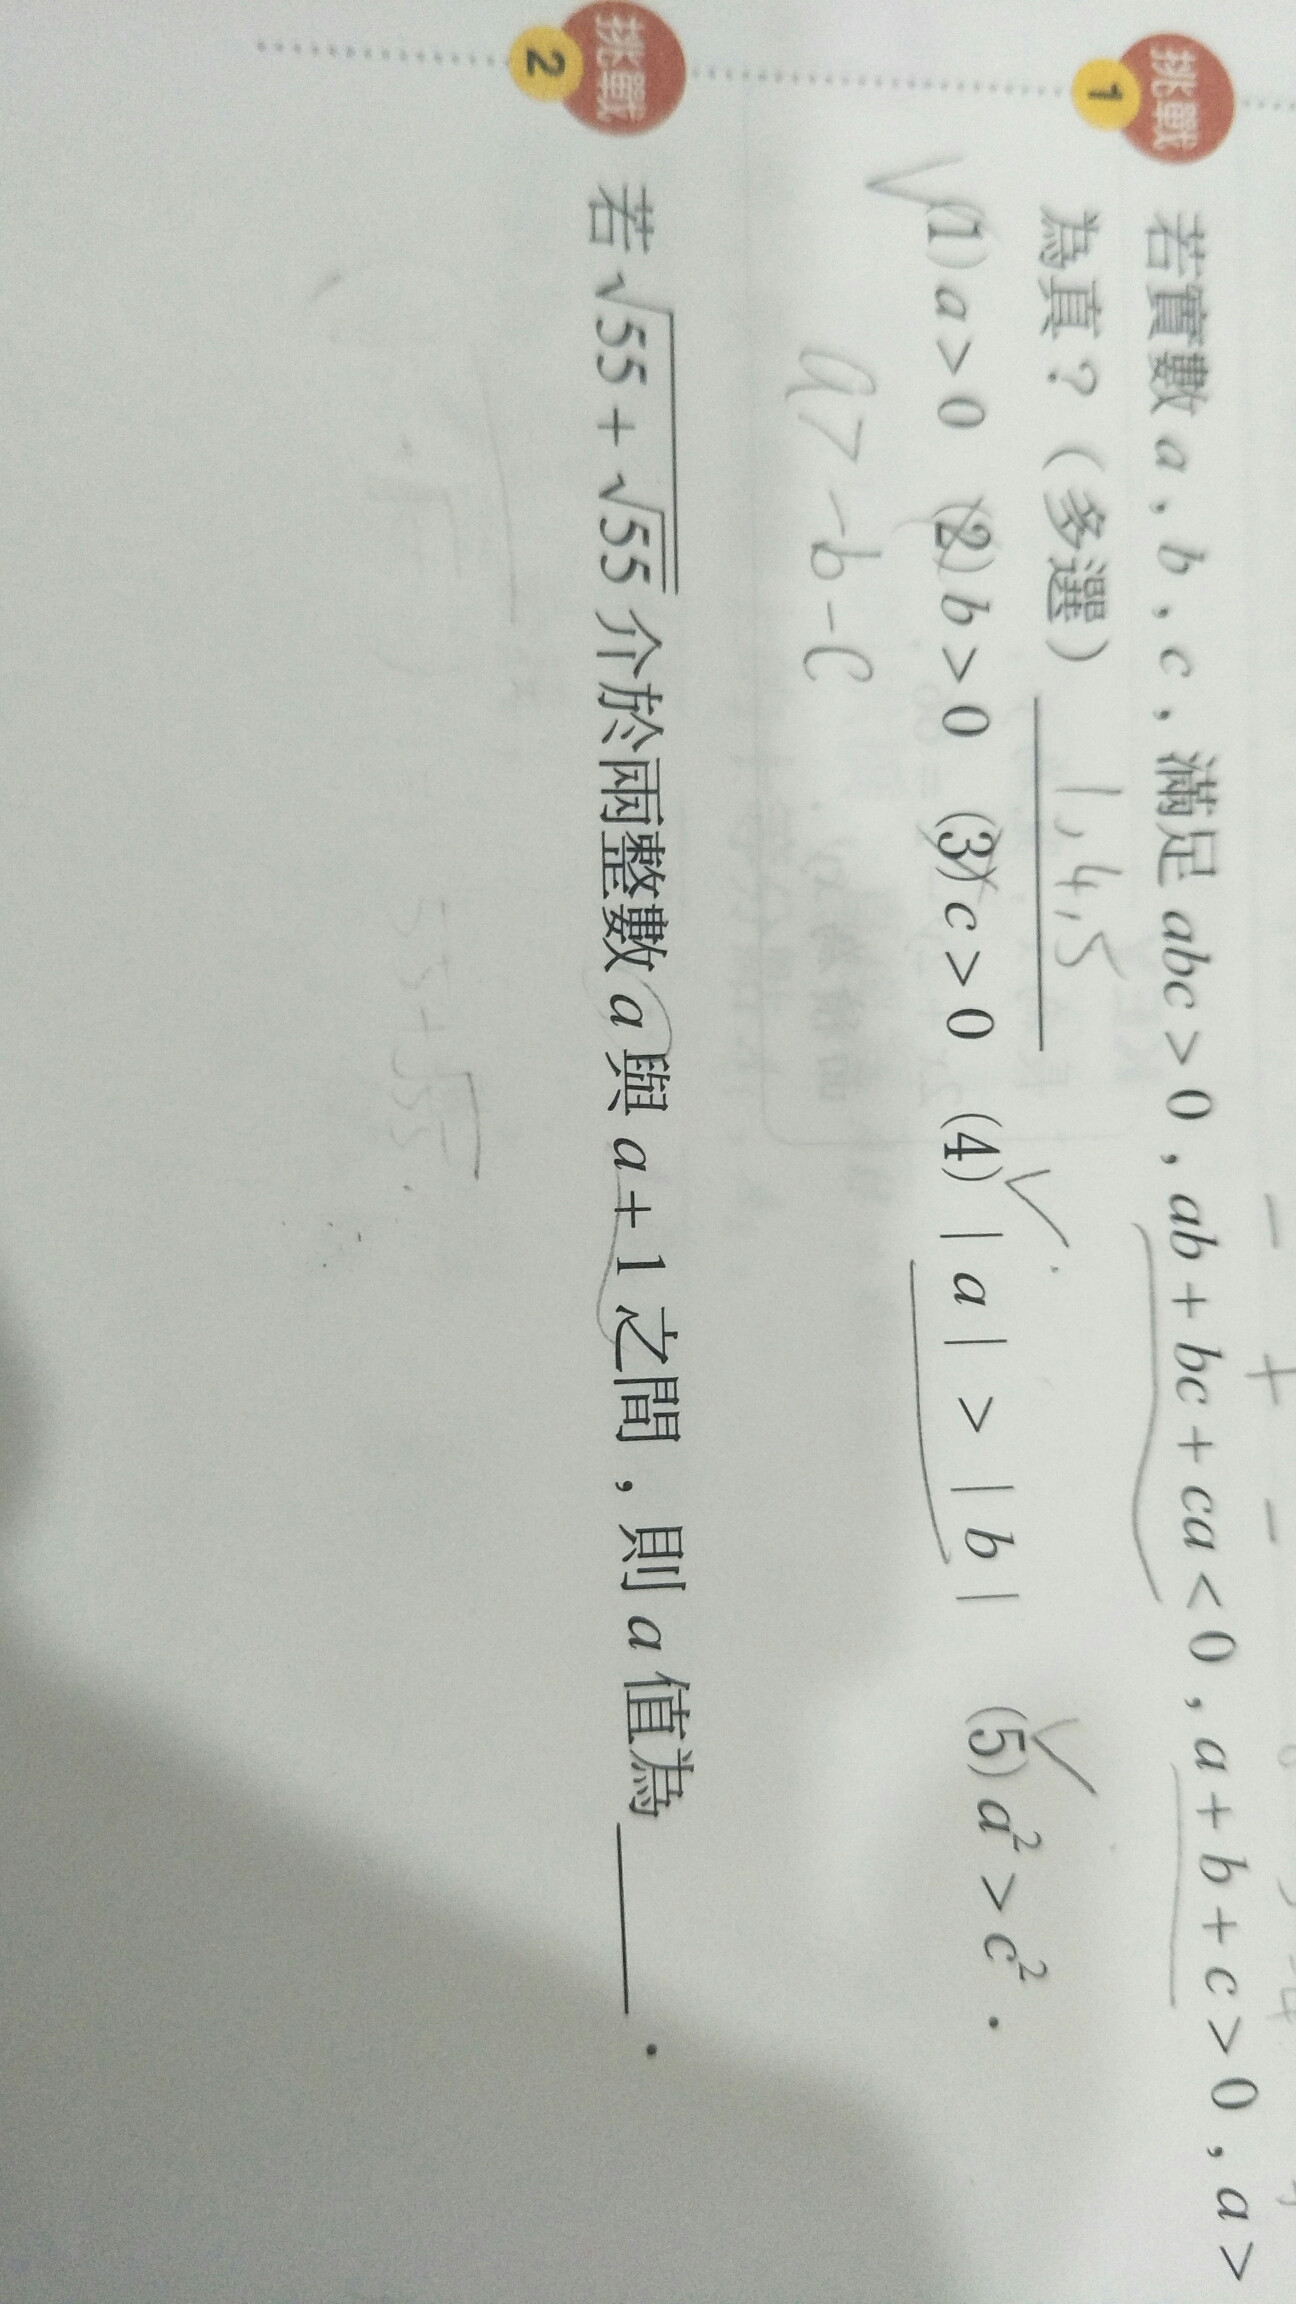 挑戰 1 若實數 a，b，c，滿足 abc > 0，ab + bc + ca < 0，a + b + c > 0，a >
為真？（多選） 1,4,5
√(1) a > 0 (2) b > 0 (3) c > 0 (4) | a | > | b | (5) a² > c²．
a > -b-c
挑戰 2 若 √(55 + √55) 介於兩整數 a 與 a + 1 之間，則 a 值為 ．
55+√55